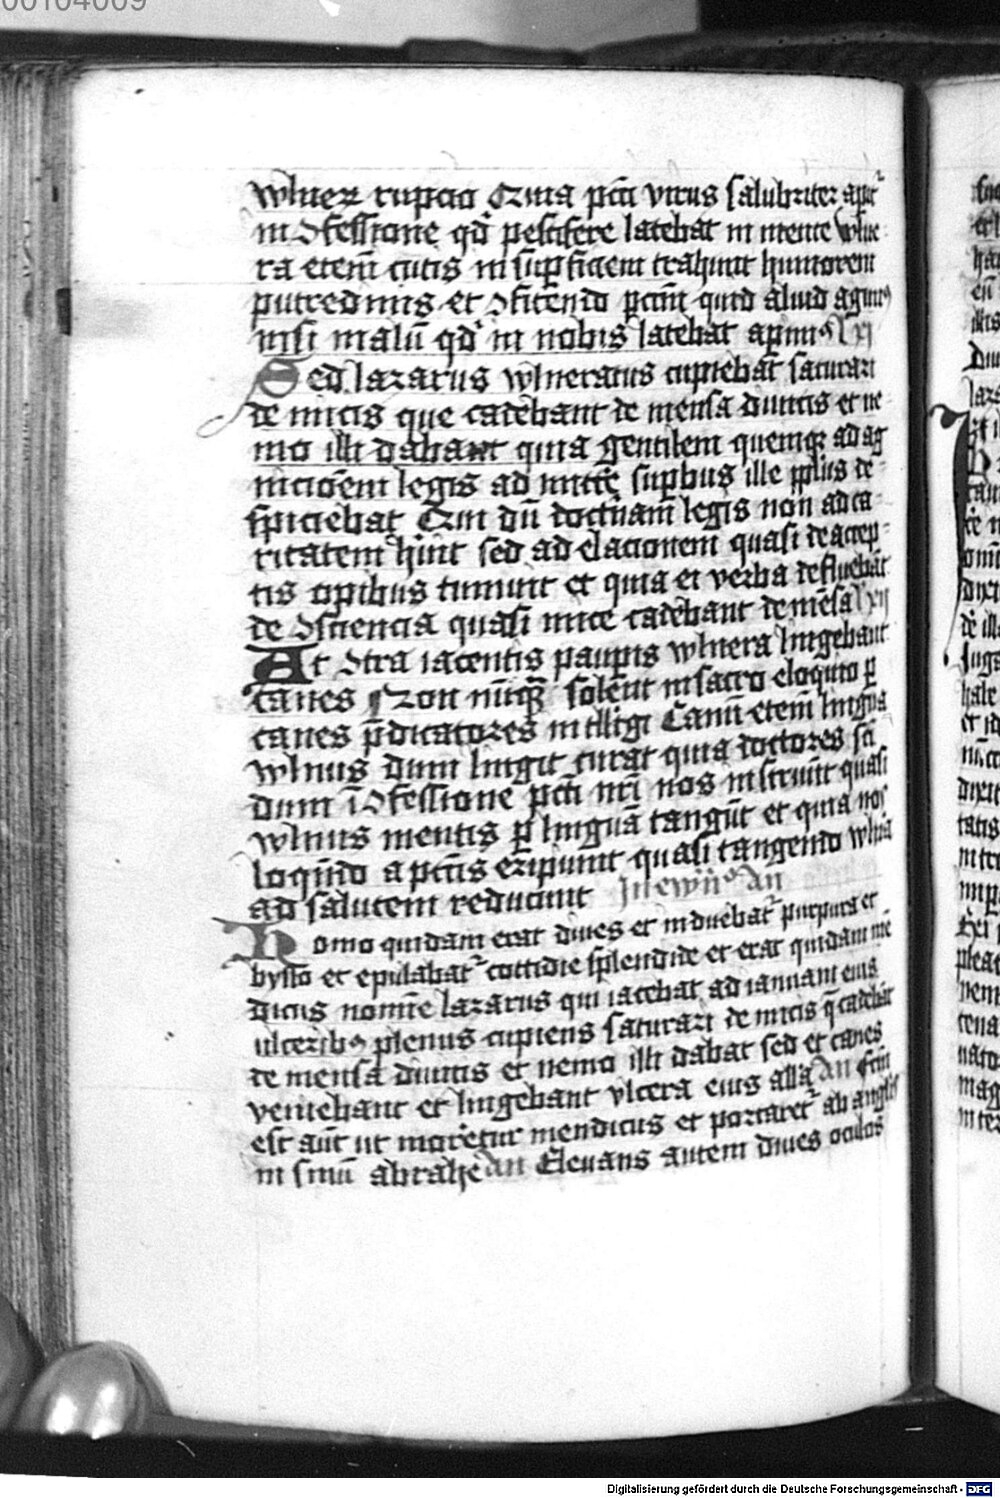 00104009
wlnerꝝ rupcio Quia pcti virus salubriter apit᷑
in ꝯfessione qd᷑ pestifere latebat in mente wlne-
ra etem̄ cutis in suꝑficiem trahunt humorem
putredinis et ꝯfitendo pctm̄ quid aliud agimꝰ
nisi malū qd᷑ in nobis latebat aperimꝰ Lxi
Sed lazarus wlneratus cupiebat saturari
de micis que cadebant de mensa diuitis et ne
mo illi dabant quia gentilem quemqꝫ ad ag
nicōem legis admitte᷑ suꝑbus ille ppl̄us de-
spiciebat Qui dū doctnam legis non ad ca-
ritatem hūit sed ad elacionem quasi de accep-
tis opibus tumuit et quia ei verba defluebāt
de ꝯsciencia quasi mice cadebant de mēsa Lxii
At ꝯtra iacentis pauꝑis wlnera lingebant
canes Non nūqꝫ solent in sacro eloquio ꝑ
canes p̄dicatores intelligi Canū etem̄ lingua
wlnus dum lingit curat quia doctores sci
dum ī ꝯfessione pcti nr̄i nos instruūt quasi
wlnus mentis ꝑ linguā tangūt et quia nos
loquēdo a pctis eripiunt quasi tangendo wlnera
ad salutem reducunt In ewn̄o An
Homo quidam erat diues et induebat᷑ purpura et
bysso et epulabat᷑ cottidie splendide et erat quidam mē
dicus nomīe lazarus qui iacebat ad iannam eius
ulceribꝰ plenus cupiens saturari de micis q̄ cadebāt
de mensa diuitis et nemo illi dabat sed et canes
veniebant et lingebant vlcera eius alla An fctm̄
est aūt ut moretur mendicus et portaret᷑ ab anglis
in sinū abrahe An Eleuans autem diues oculos
Digitalisierung gefördert durch die Deutsche Forschungsgemeinschaft - DFG